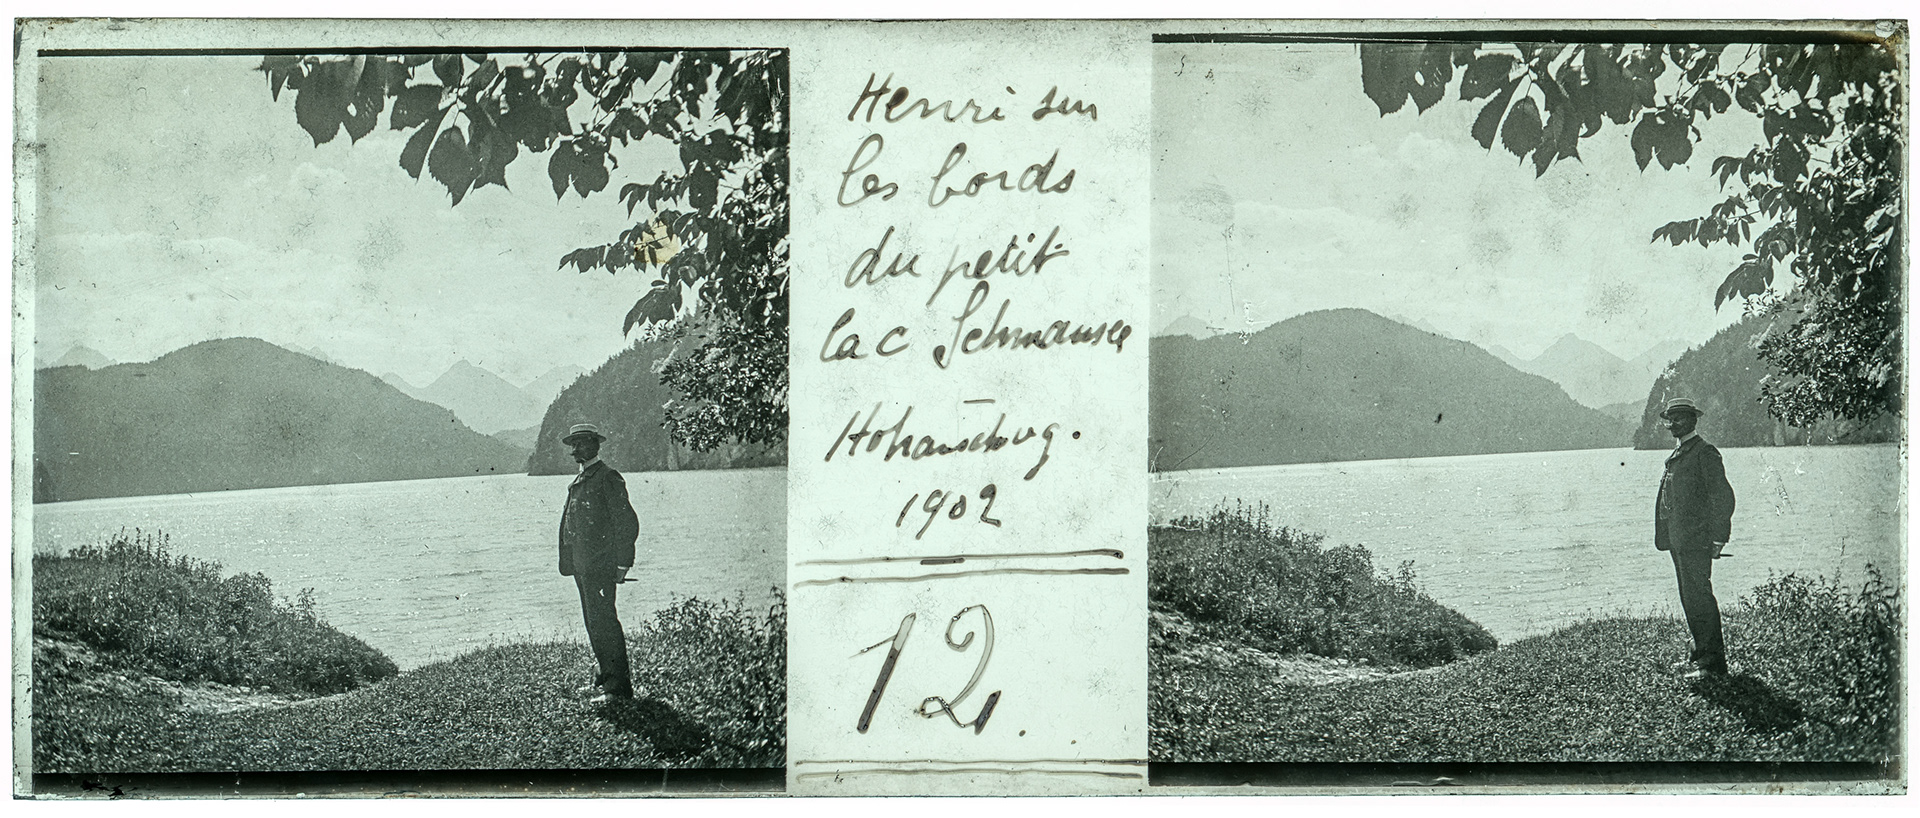 Henri sur
les bords
du petit
lac Schwansee
1902
12.